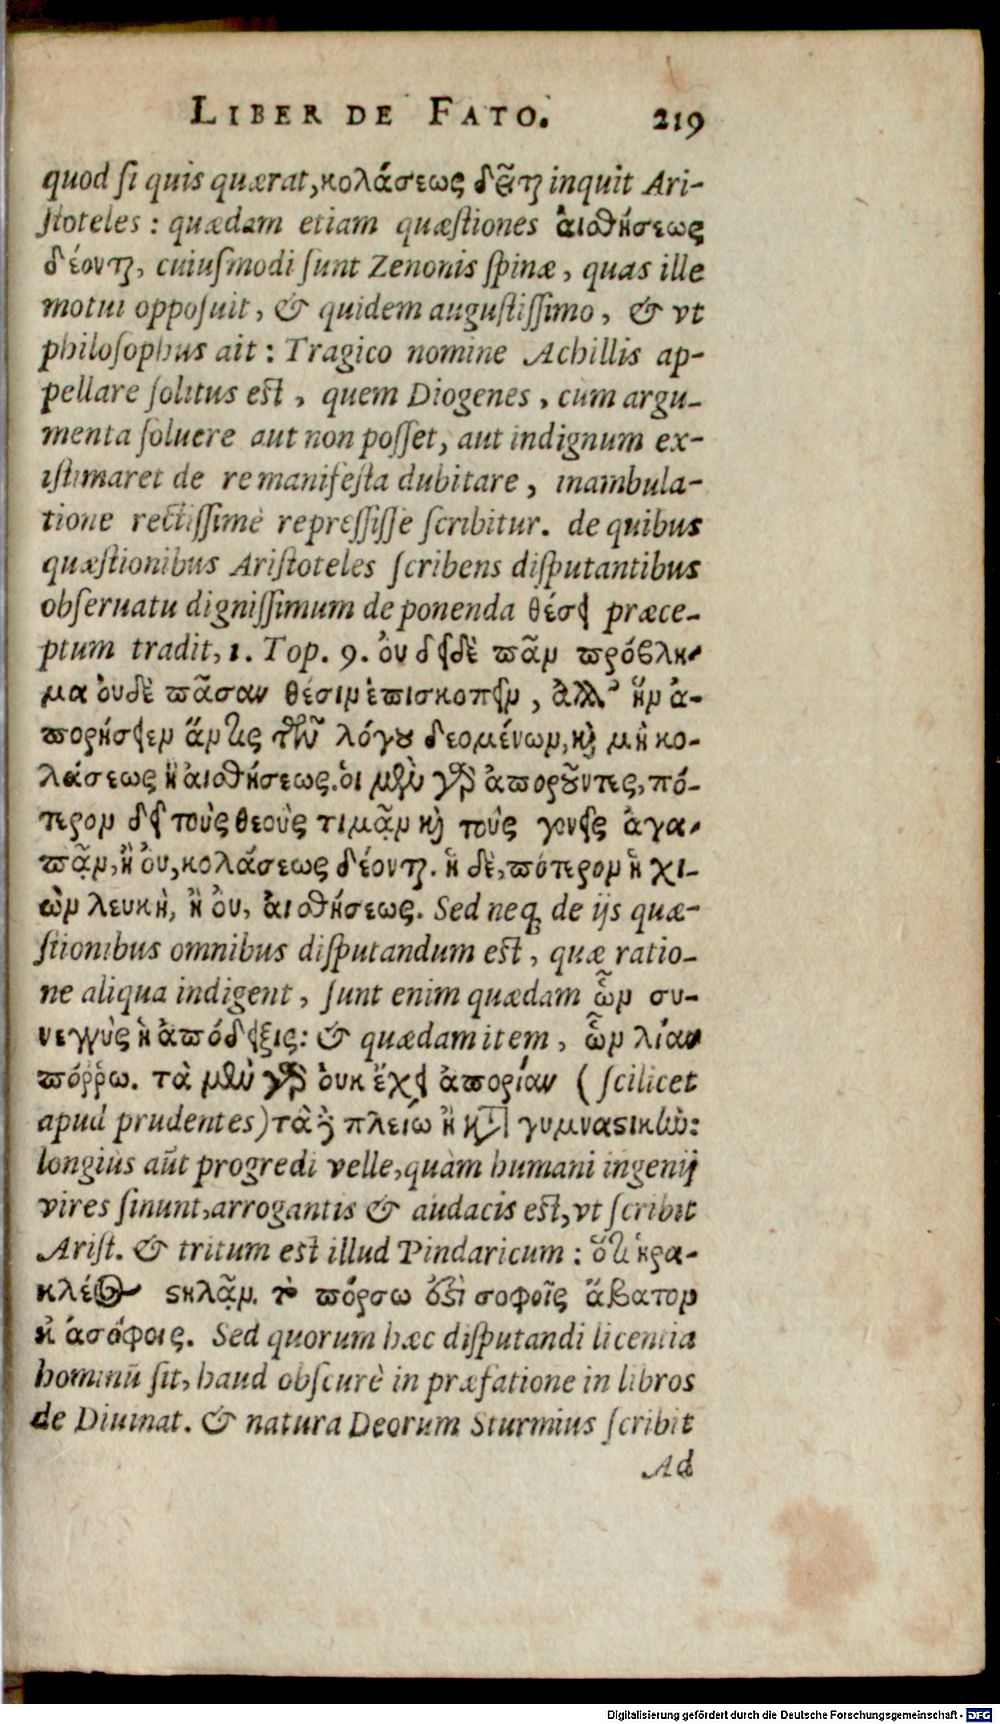 LIBER DE FATO. 219
quod si quis quærat, κολάσεως δεῖται inquit Ari-
stoteles : quædam etiam quæstiones ἀισθήσεως
δέονται, cuiusmodi sunt Zenonis spinæ, quas ille
motui opposuit, & quidem augustissimo, & vt
philosophus ait : Tragico nomine Achillis ap-
pellare solitus est, quem Diogenes, cum argu-
menta soluere aut non posset, aut indignum ex-
istimaret de re manifesta dubitare, inambula-
tione rectissimè repressisse scribitur. de quibus
quæstionibus Aristoteles scribens disputantibus
obseruatu dignissimum de ponenda θέσει præce-
ptum tradit, 1. Top. 9. ὀυ δεῖ δὲ πᾶν πρόβλη-
μα ὀυδὲ πᾶσαν θέσιν ἐπισκοπεῖν, ἀλλ' ἣν ἀ-
πορήσειεν ἄν τις τῶν λόγου δεομένων, καὶ μὴ κο-
λάσεως ἢ ἀισθήσεως. ὁι μὲν γὰρ ἀποροῦντες, πό-
τερον δεῖ τοὺς θεοὺς τιμᾷν καὶ τοὺς γονεῖς ἀγα-
πᾷν, ἢ ὀυ, κολάσεως δέονται. ἡ δὲ, πότερον ἡ χι-
ὼν λευκὴ, ἢ ὀυ, ἀισθήσεως. Sed neq; de ijs quæ-
stionibus omnibus disputandum est, quæ ratio-
ne aliqua indigent, sunt enim quædam ὧν συ-
νεγγὺς ἡ ἀπόδειξις: & quædam item, ὧν λίαν
πόῤῥω. τὰ μὲν γὰρ ὀυκ ἔχει ἀπορίαν ( scilicet
apud prudentes) τὰ δὲ πλείω ἢ κατὰ γυμναστικὴν:
longiùs aūt progredi velle, quàm humani ingenij
vires sinunt, arrogantis & audacis est, vt scribit
Arist. & tritum est illud Pindaricum : ὅτι ἡρα-
κλέος στηλᾷν. τὸ πόρσω ἐστὶ σοφοῖς ἄβατον
κ' ἀσόφοις. Sed quorum hæc disputandi licentia
hominū sit, haud obscurè in præfatione in libros
de Diuinat. & natura Deorum Sturmius scribit
Ad
Digitalisierung gefördert durch die Deutsche Forschungsgemeinschaft - DFG